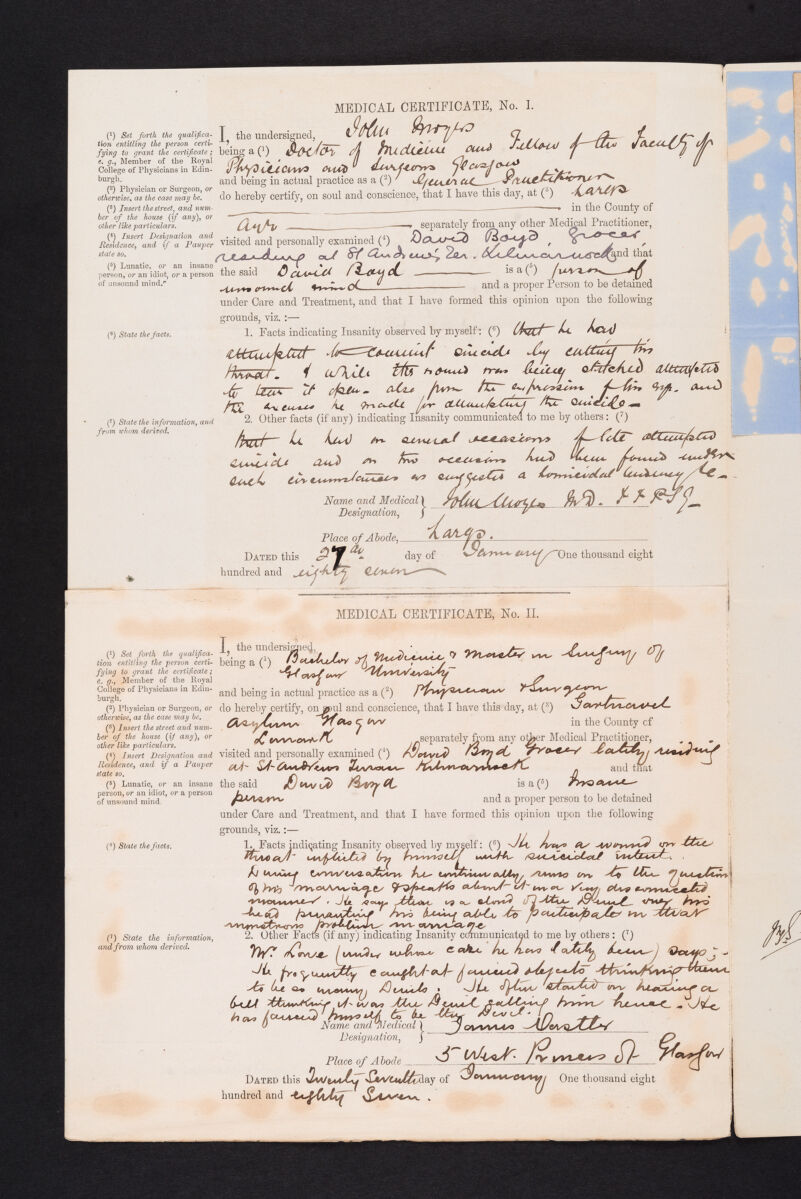 MEDICAL CERTIFICATE, No. I.
(1) Set forth the qualifica-
tion entitling the person certi-
fying to grant the certificate;
e. g., Member of the Royal
College of Physicians in Edin-
burgh.
(2) Physician or Surgeon, or
otherwise, as the case may be.
(3) Insert the street, and num-
ber of the house (if any), or
other like particulars.
(4) Insert Designation and
Residence, and if a Pauper
state so.
(5) Lunatic, or an insane
person, or an idiot, or a person
of unsound mind."
(6) State the facts.
(7) State the information, and
from whom derived.
I, the undersigned, John Moyes
being a (1) Doctor of Medicine and Fellow of the Faculty of
Physicians and Surgeons Glasgow
and being in actual practice as a (2) General Practitioner
do hereby certify, on soul and conscience, that I have this day, at (3) Largs
in the County of
Ayr separately from any other Medical Practitioner,
visited and personally examined (4) David Boyd, Grocer,
residing at St Andrew's Ter. Kilmarnock and that
the said David Boyd is a (5) person of
unsound mind and a proper Person to be detained
under Care and Treatment, and that I have formed this opinion upon the following
grounds, viz. :—
1. Facts indicating Insanity observed by myself: (6) that he had
attempted to commit suicide by cutting his
throat. & while the wound was being stitched attempted
to tear it open - also from the expression of his eye. and
the excuses he made for attempting the suicide -
2. Other facts (if any) indicating Insanity communicated to me by others: (7)
that he had on several occasions of late attempted
suicide and on two occasions had been found under
such circumstances as suggested a homicidal tendency &c -
Name and Medical Designation, John Moyes M.D. F.F.P.S.G.
Place of Abode, Largs.
DATED this 27th day of January One thousand eight
hundred and eighty seven
MEDICAL CERTIFICATE, No. II.
(1) Set forth the qualifica-
tion entitling the person certi-
fying to grant the certificate;
e. g., Member of the Royal
College of Physicians in Edin-
burgh.
(2) Physician or Surgeon, or
otherwise, as the case may be.
(3) Insert the street and num-
ber of the house (if any), or
other like particulars.
(4) Insert Designation and
Residence, and if a Pauper
state so.
(5) Lunatic, or an insane
person, or an idiot, or a person
of unsound mind.
(6) State the facts.
(7) State the information,
and from whom derived.
I, the undersigned,
being a (1) Bachelor of Medicine & Master in Surgery of
Glasgow University
and being in actual practice as a (2) Physician & Surgeon
do hereby certify, on soul and conscience, that I have this day, at (3) Gartnavel
Asylum Glasgow in the County of
Lanark separately from any other Medical Practitioner,
visited and personally examined (4) David Boyd Grocer lately residing
at St Andrews Terrace Kilmarnock and that
the said David Boyd is a (5) Insane
person and a proper person to be detained
under Care and Treatment, and that I have formed this opinion upon the following
grounds, viz. :—
1. Facts indicating Insanity observed by myself: (6) He has a wound on the
throat inflicted by himself with suicidal intent.
During conversation he continually runs on to the question
of his marriage & speaks about it in a very disconnected
manner. He says there is a cloud of the Devil over his
head preventing his being able to participate in that
monstrous problem marriage
2. Other Facts (if any) indicating Insanity communicated to me by others: (7)
Mr. Lowe (under whose care he has lately been) says; -
He frequently caught at fancied objects thinking them
to be so many Devils. He often started on hearing a
bell thinking it was the Devil calling him hence. He
has fancied himself to be the Devil.
Name and Medical Designation, James
Place of Abode 5 West Princes St Glasgow
DATED this Twenty Seventh day of January One thousand eight
hundred and eighty Seven.